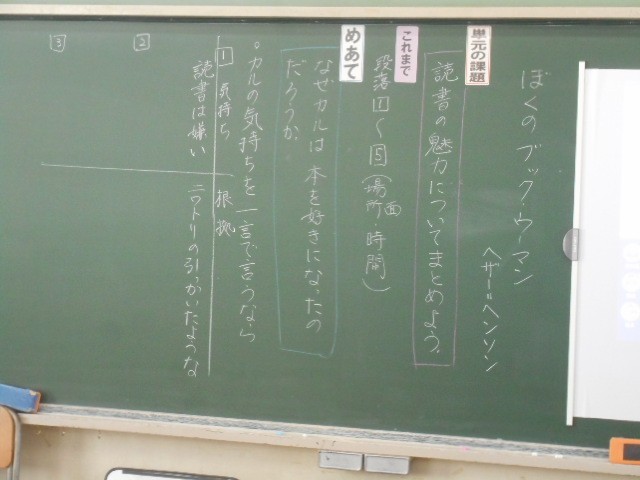 ぼくのブック・ウーマン
ヘザー＝ヘンソン
単元の課題
読書の魅力についてまとめよう。
これまで
段落1〜5(場面 場所・時間)
めあて
なぜカルは本を好きになったの
だろうか
。カルの気持ちを一言で言うなら
1 気持ち 根拠
読書は嫌い ニワトリの引っかいたような
2
3